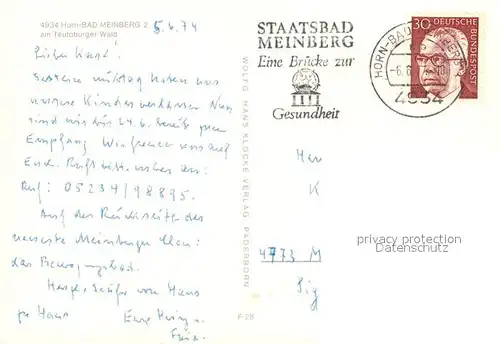 4934 Horn-BAD MEINBERG 2
am Teutoburger Wald
5.6.74
Gestern mittag haben uns
unsere Kinder verlassen. Nun
sind wir bis 24.6. bereit zum
Empfang. Wir freuen uns auf
Euch. Ruft bitte vorher an:
Ruf: 05234/98895.
Auf der Rückseite der
neueste Meinberger Clou:
das Bewegungsbad.
Herzl. Grüße von Haus
zu Haus
Eure
WOLFG. HANS KLOCKE VERLAG PADERBORN
F 28
STAATSBAD
MEINBERG
Eine Brücke zur
Gesundheit
HORN-BAD MEINBERG
-6.6.
4934
30 DEUTSCHE
BUNDESPOST
K
4773 M
privacy protection
Datenschutz